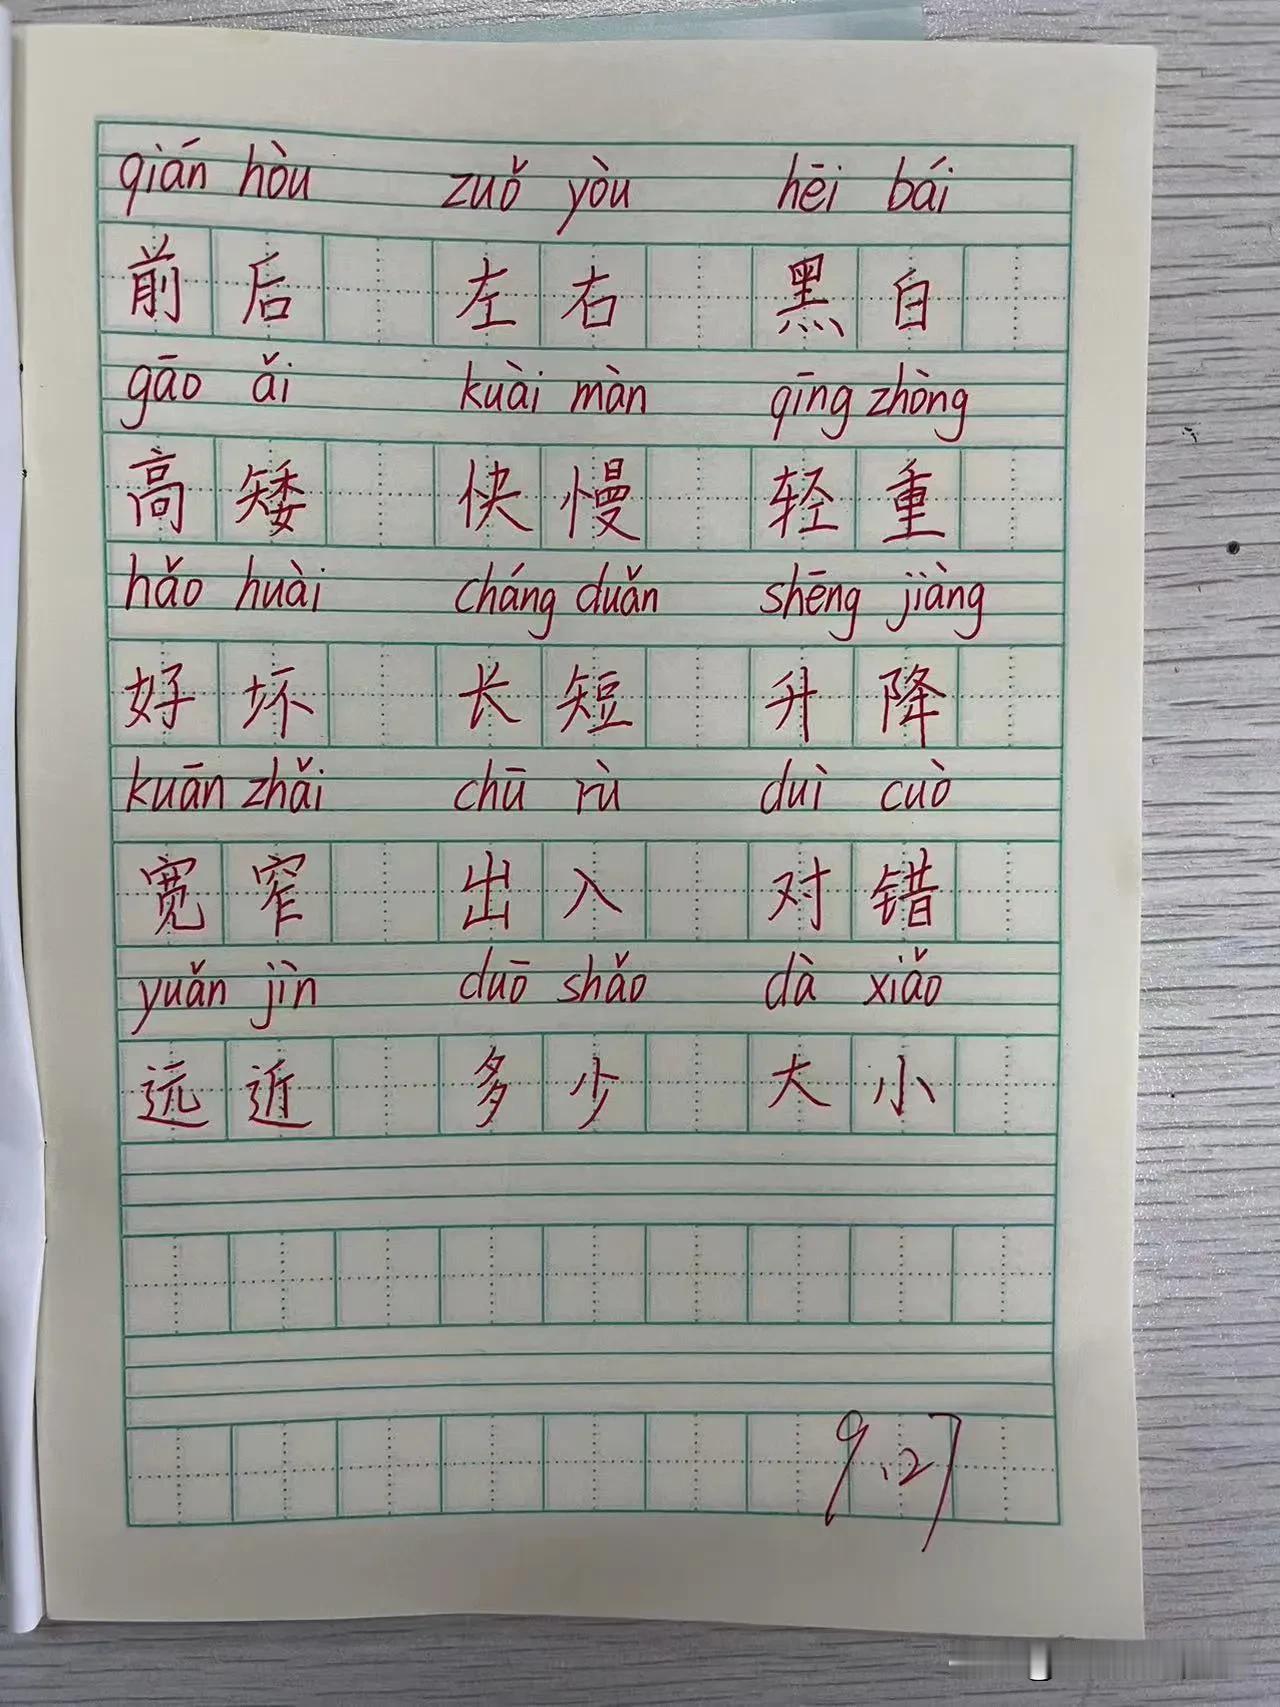 qián hòu zuǒ yòu hēi bái
前后 左右 黑白
gāo ǎi kuài màn qīng zhòng
高矮 快慢 轻重
hǎo huài cháng duǎn shēng jiàng
好坏 长短 升降
kuān zhǎi chū rù duì cuò
宽窄 出入 对错
yuǎn jìn duō shǎo dà xiǎo
远近 多少 大小
9.27